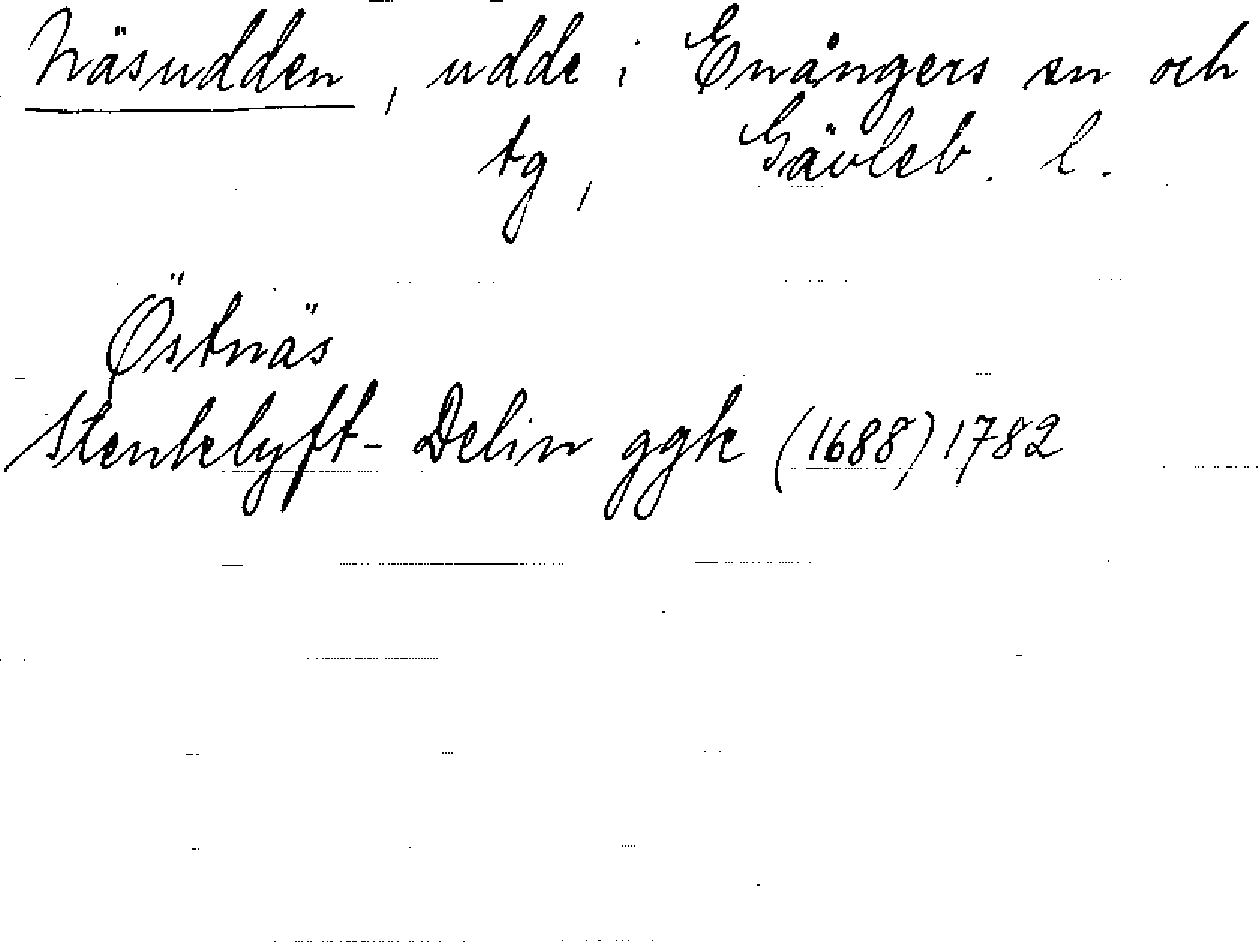 Näsudden, udde i Enångers sn och
tg, Gävleb. l.
Östnäs
Stenklyft- Delin ggk (1688) 1782